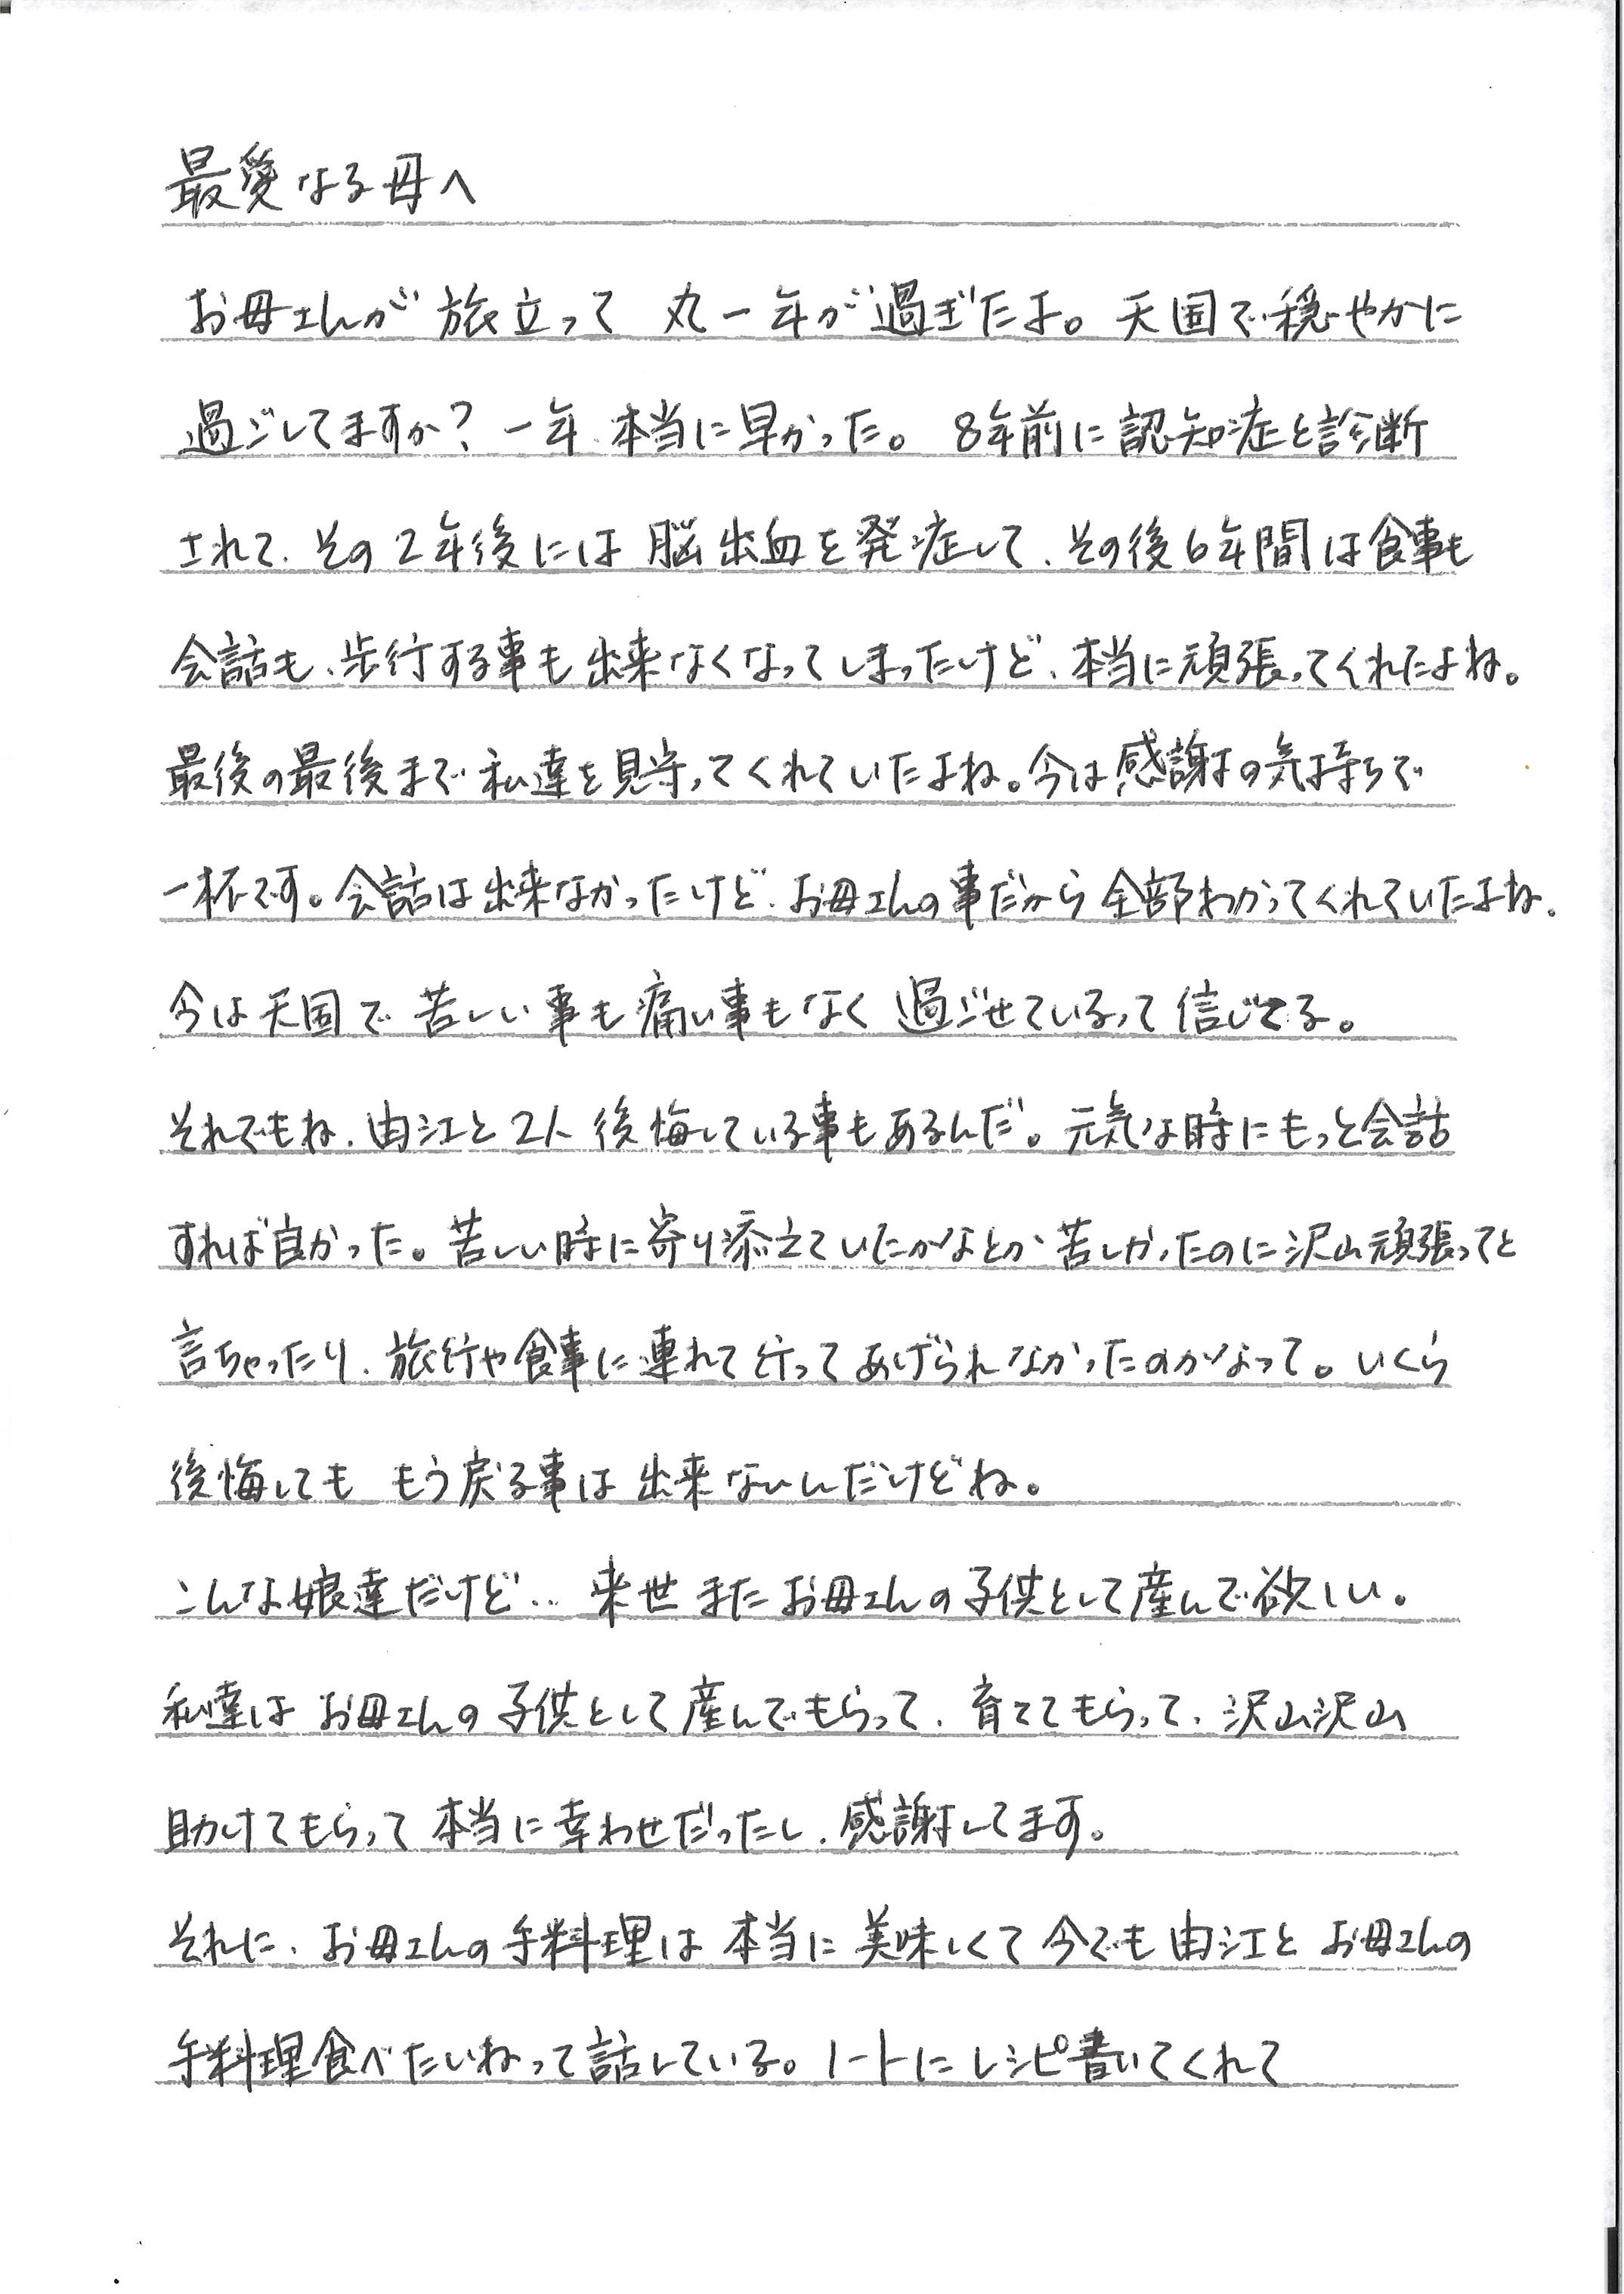 最愛なる母へ
お母さんが 旅立って 丸一年が過ぎたよ。天国で穏やかに
過ごしてますか？一年、本当に早かった。8年前に認知症と診断
されて、その2年後には脳出血を発症して、その後6年間は食事も
会話も、歩行する事も出来なくなってしまったけど、本当に頑張ってくれたよね。
最後の最後まで私達を見守ってくれていたよね。今は感謝の気持ちで
一杯です。会話は出来なかったけど、お母さんの事だから全部わかってくれていたよね。
今は天国で苦しい事も痛い事もなく過ごせているって信じてる。
それでもね、由江と2人後悔している事もあるんだ。元気な時にもっと会話
すれば良かった。苦しい時に寄り添えていたかなとか、苦しかったのに沢山頑張ってと
言ちゃったり、旅行や食事に連れて行ってあげられなかったのかなって。いくら
後悔しても もう戻る事は出来ないんだけどね。
こんな娘達だけど… 来世またお母さんの子供として産んで欲しい。
私達はお母さんの子供として産んでもらって、育ててもらって、沢山沢山
助けてもらって本当に幸わせだったし、感謝してます。
それに、お母さんの手料理は本当に美味しくて今でも由江とお母さんの
手料理食べたいねって話している。ノートにレシピ書いてくれて